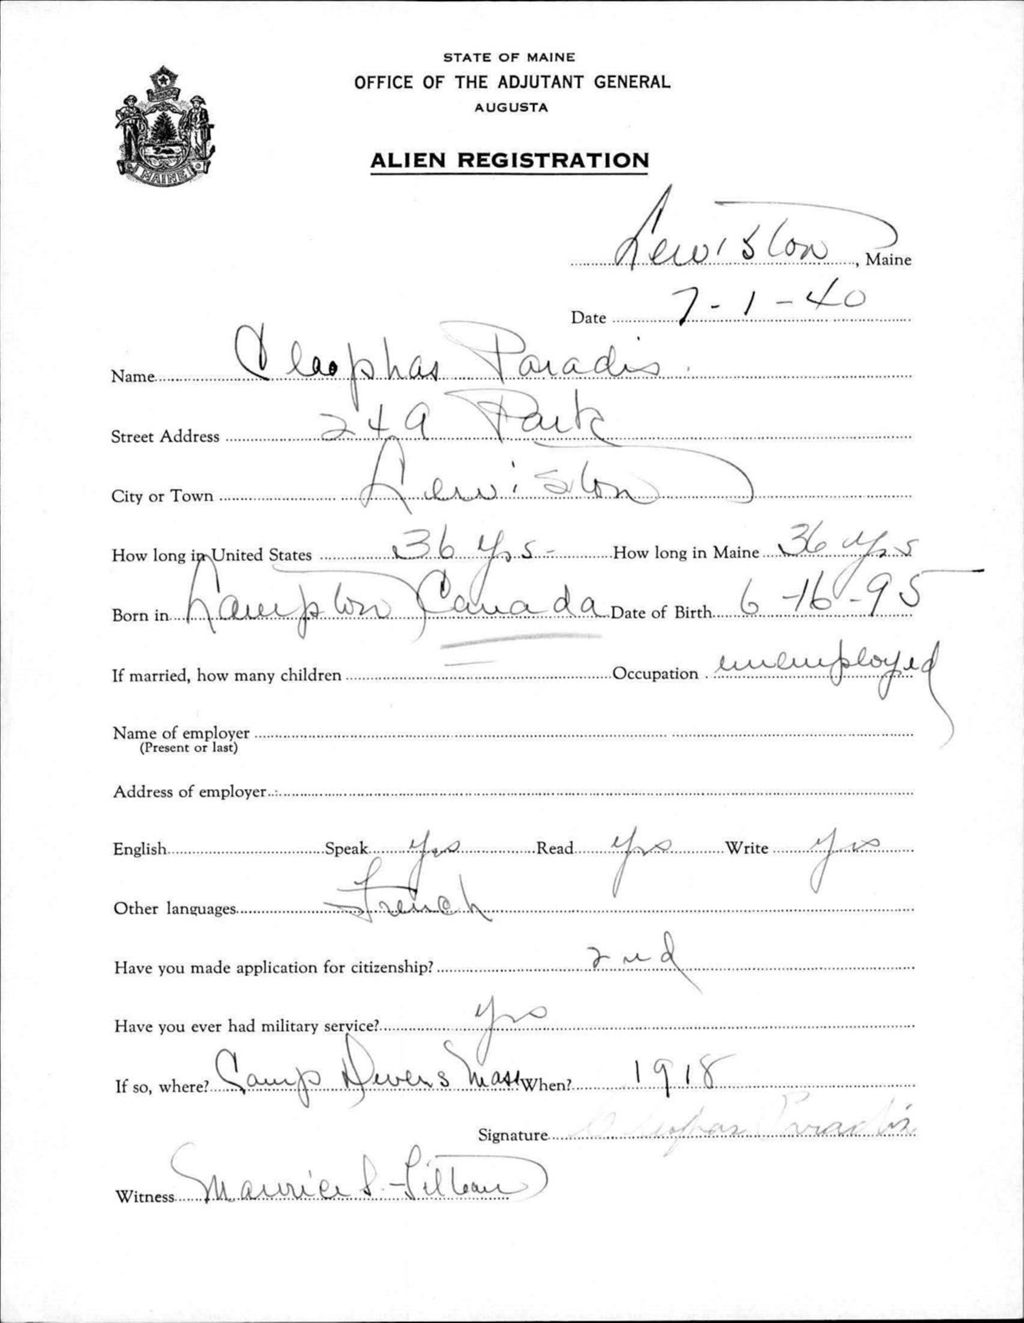 STATE OF MAINE
OFFICE OF THE ADJUTANT GENERAL
AUGUSTA
MAINE
ALIEN REGISTRATION
Lewiston, Maine
Date 7-1-40
Name Cleophas Paradis
Street Address 249 Park
City or Town Lewiston
How long in United States 36 yrs- How long in Maine 36 yrs
Born in Lampton Canada Date of Birth 6-16-95
If married, how many children Occupation unemployed
Name of employer
(Present or last)
Address of employer
English Speak yes Read yes Write yes
Other languages French
Have you made application for citizenship? 2nd
Have you ever had military service? yes
If so, where? Camp Devens Mass When? 1918
Signature Cleophas Paradis
Witness Maurice